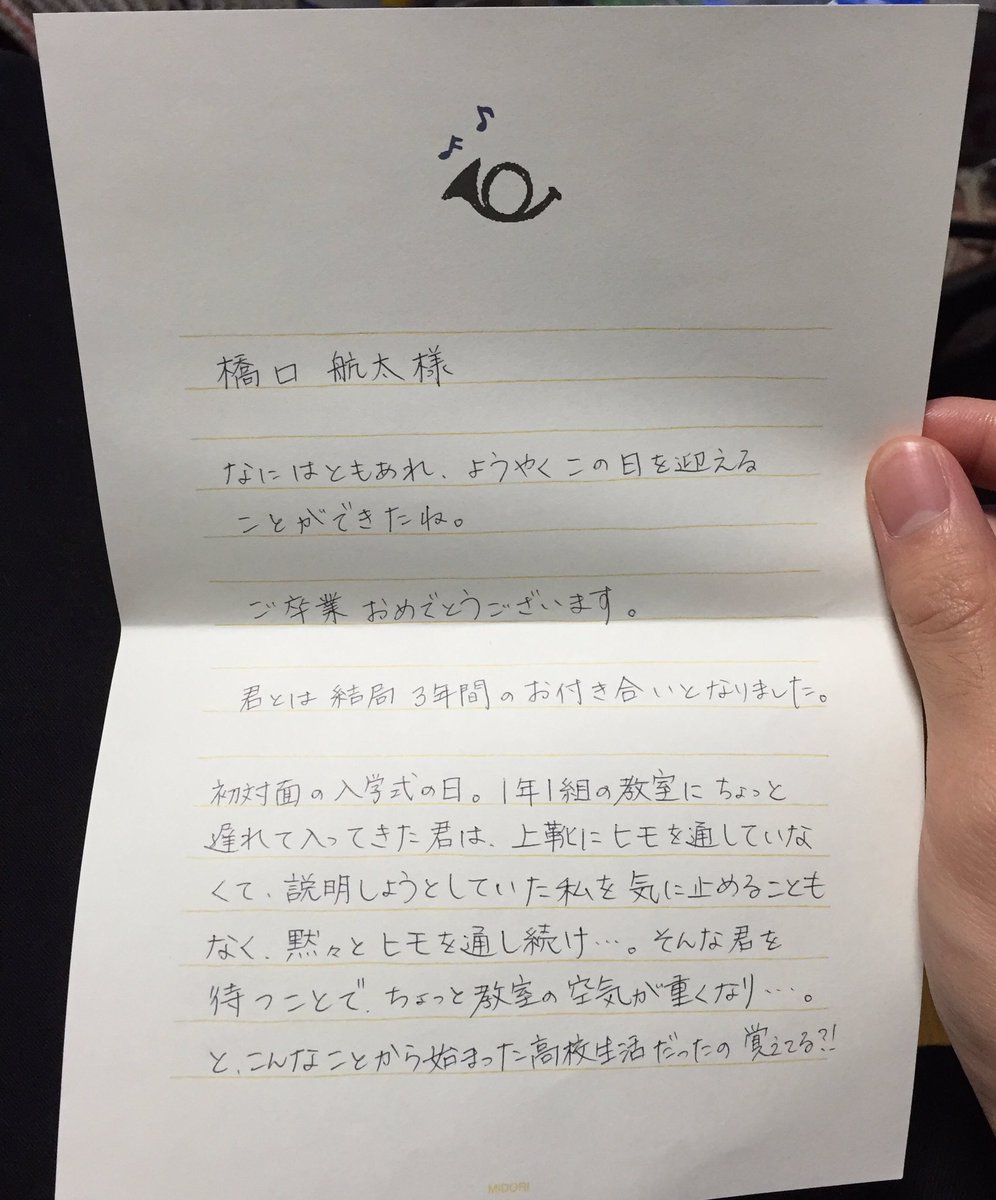 橋口 航太様
なにはともあれ、ようやくこの日を迎える
ことができたね。
ご卒業おめでとうございます。
君とは結局3年間のお付き合いとなりました。
初対面の入学式の日。1年1組の教室にちょっと
遅れて入ってきた君は、上靴にヒモを通していな
くて、説明しようとしていた私を気に止めることも
なく、黙々とヒモを通し続け…。そんな君を
待つことで、ちょっと教室の空気が重くなり…。
と、こんなことから始まった高校生活だったの覚えてる?!
MIDORI